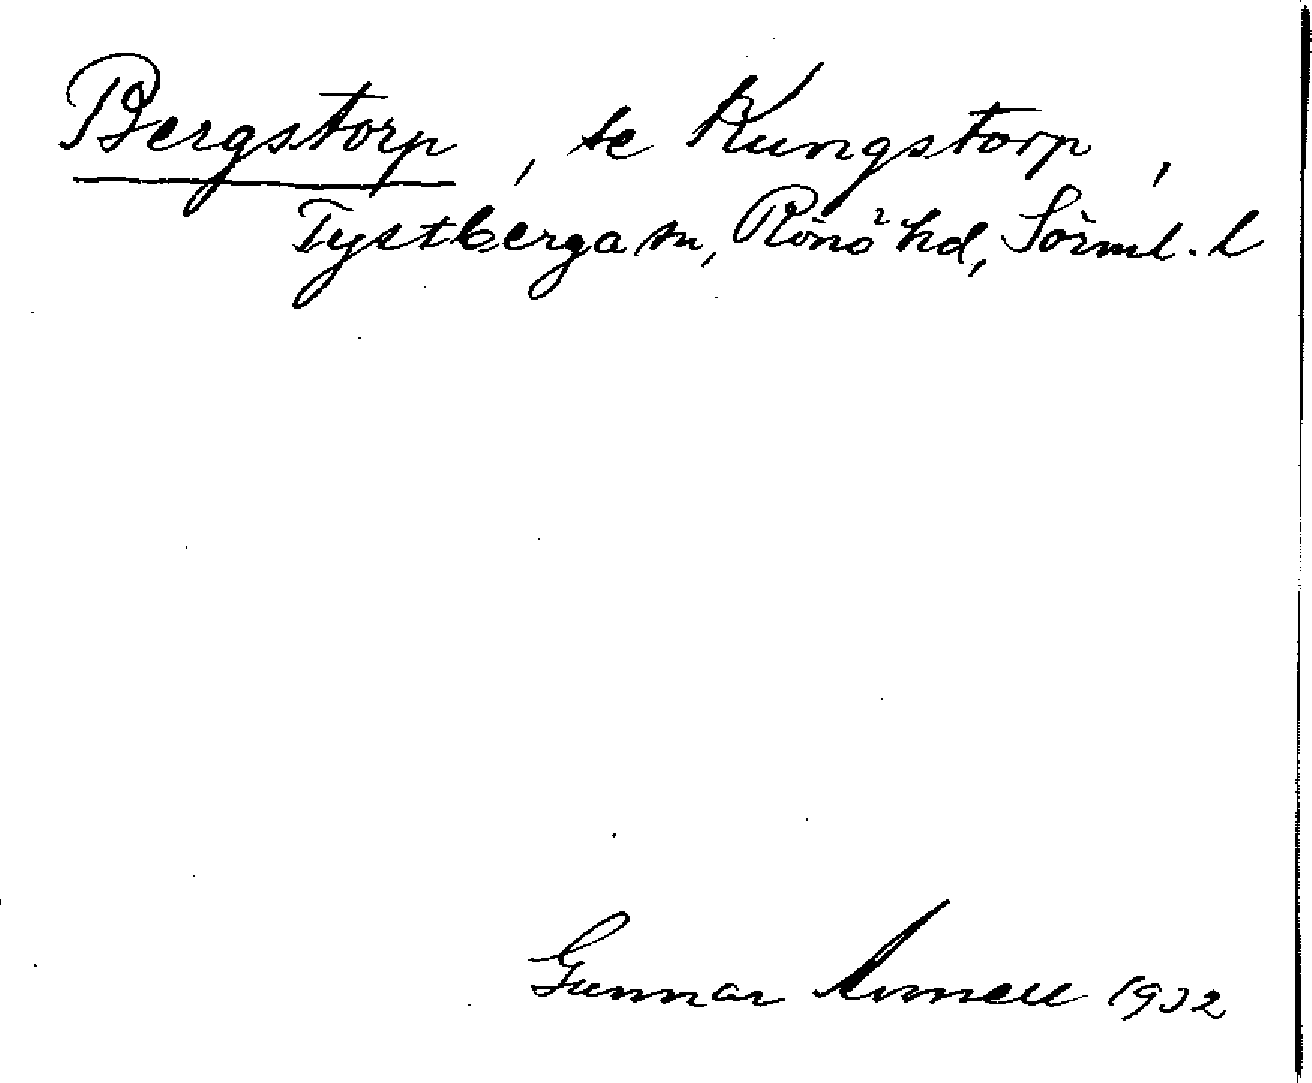 Bergstorp, se Kungstorp,
Tystberga sn, Rönö hd, Sörml. l
Gunnar Arnell 1932